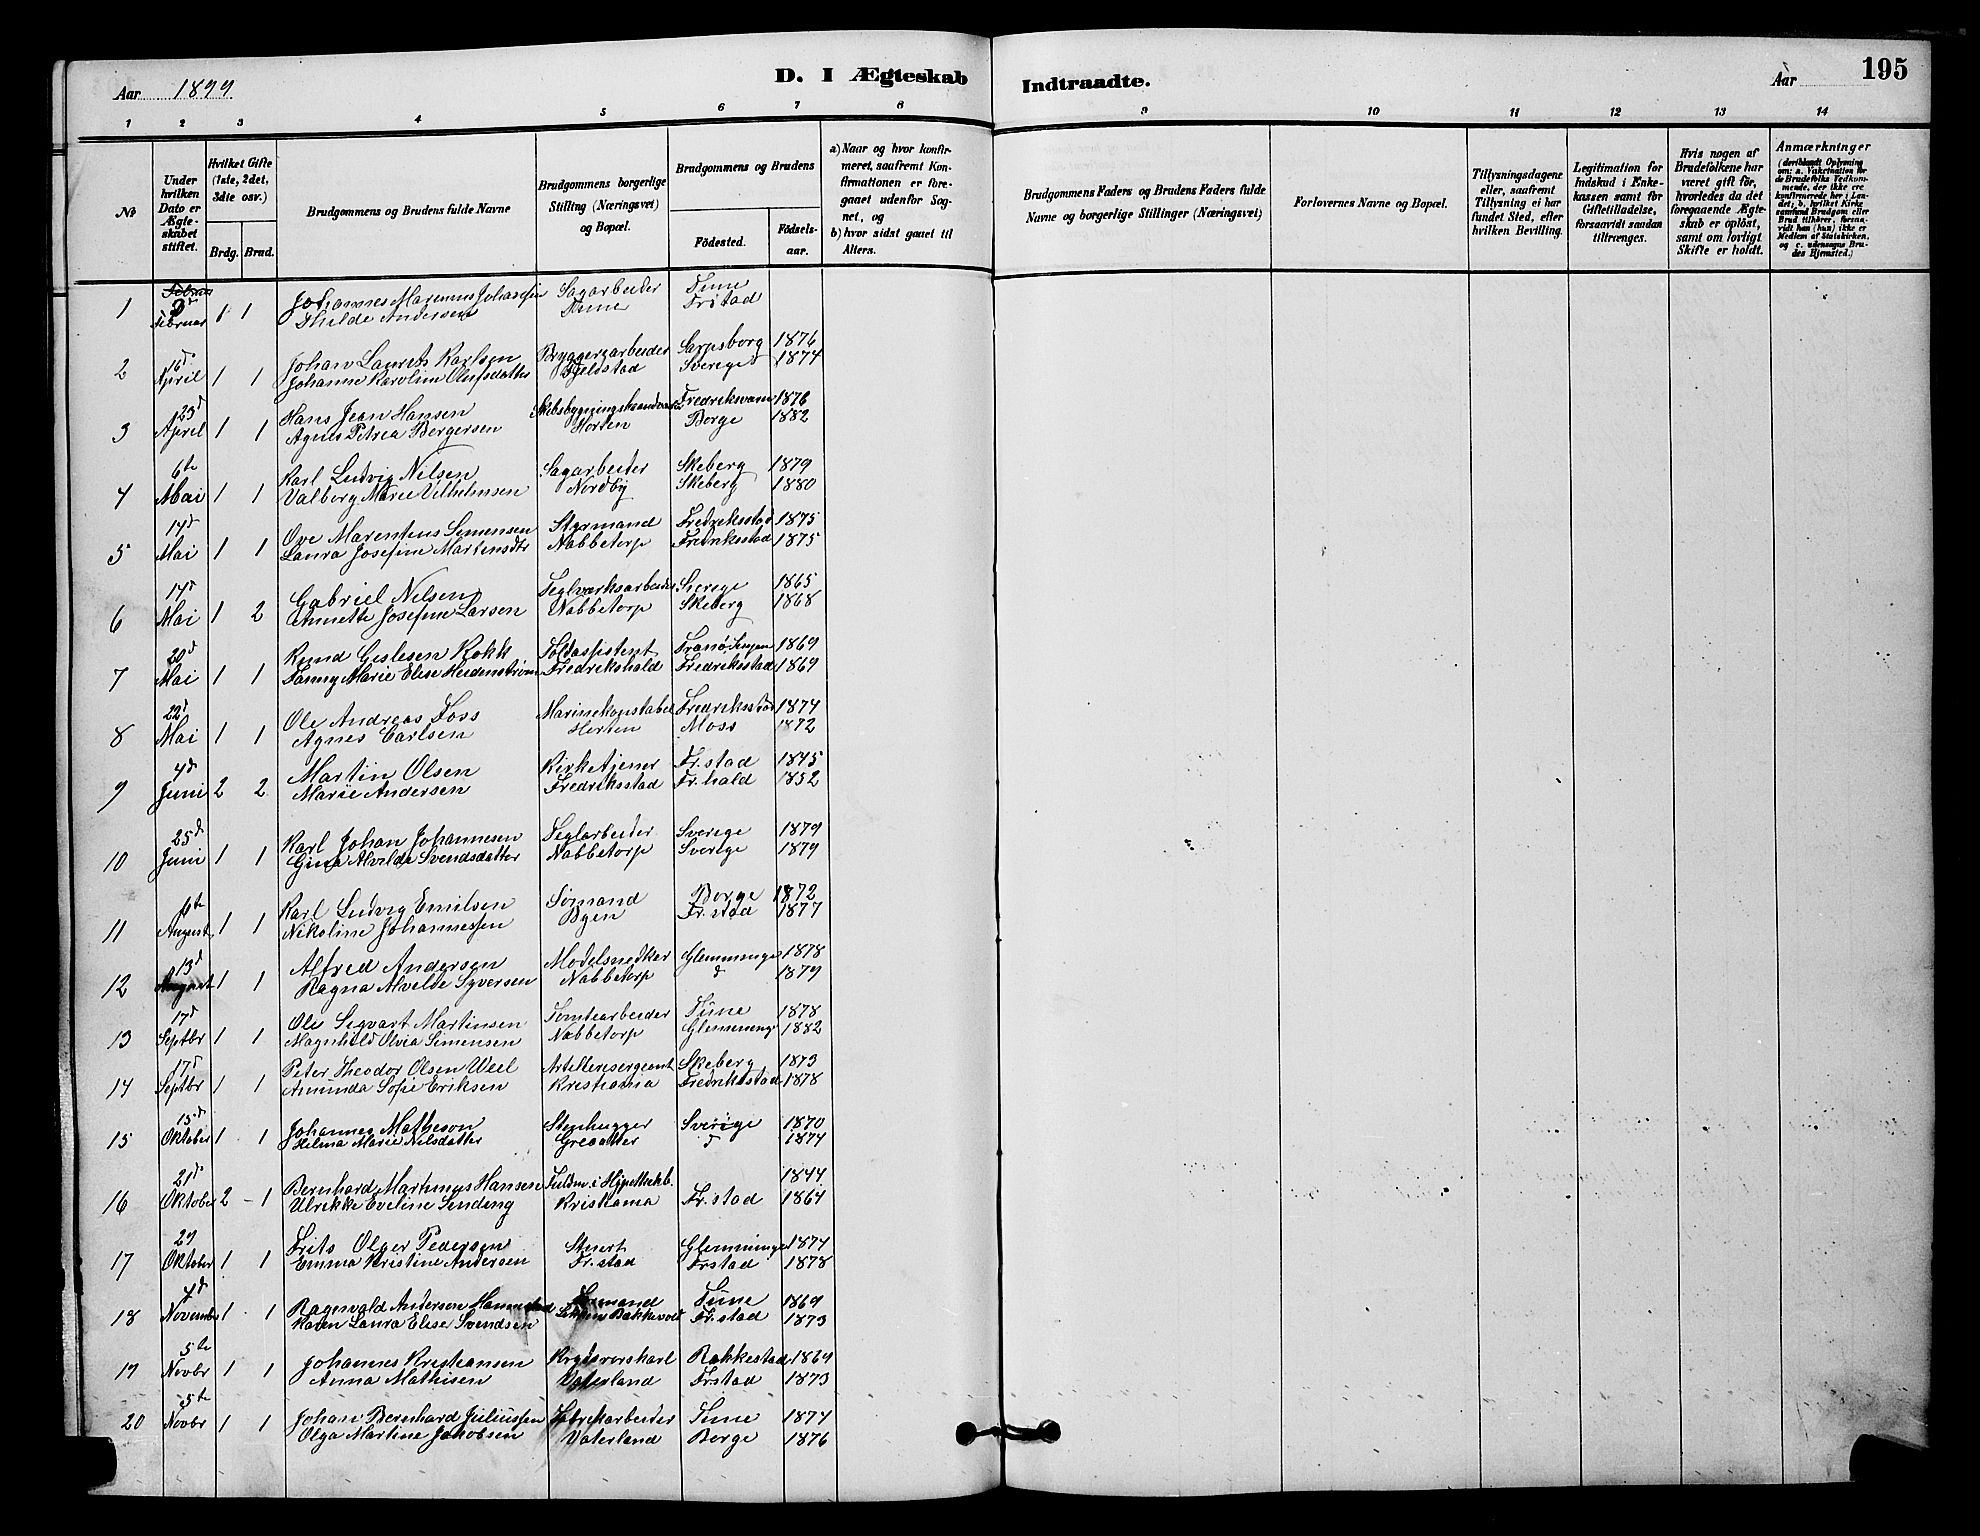 Aar 1899
D. I Ægteskab
Indtraadte.
Aar
195
1 2 3 4 5 6 7 8 9 10 11 12 13 14
No
Under hvilken Dato er Ægteskabet stiftet.
Hvilket Gifte (1ste, 2det, 3dte osv.)
Brdg. Brud.
Brudgommens og Brudens fulde Navne
Brudgommens borgerlige Stilling (Næringsvei) og Bopæl.
Brudgommens og Brudens
Fødested.
Fødselsaar.
a) Naar og hvor konfirmeret, saafremt Konfirmationen er foregaaet udenfor Sognet, og
b) hvor sidst gaaet til Alters.
Brudgommens Faders og Brudens Faders fulde Navne og borgerlige Stillinger (Næringsvei)
Forlovernes Navne og Bopæl.
Tillysningsdagene eller, saafremt Tillysning ei har fundet Sted, efter hvilken Bevilling.
Legitimation for Indskud i Enkekassen samt for Giftetilladelse, forsaavidt saadan tiltrænges.
Hvis nogen af Brudefolkene har været gift før, hvorledes da det foregaaende Ægteskab er opløst, samt om lovligt Skifte er holdt.
Anmærkninger
(deriblandt Oplysning om: a. Vaksination for de Brudefolks Vedkommende, der ikke ere konfirmerede her i Landet; b. hvilket Kirkesamfund Brudgom eller Brud tilhører, forsaavidt han (hun) ikke er Medlem af Statskirken, og c. udensogns Brudes Hjemsted.)
1 Februar 1 1 Johannes Marenius Sagarbeider Tune
Thilde Andersen Tune Frstad
2 16d April 1 1 Johan Laurits Karlsen Bryggeriarbeider Sarpsborg 1876
Johanne Karoline Olufsdatter Sverige 1874
3 23d April 1 1 Hans Jean Hansen Fredriksværn 1876
Agnes Petrea Bergersen Horten Borge 1882
4 6te Mai 1 1 Karl Ludvig Nilsen Sagarbeider Skeberg 1879
Valborg Marie Vilhelmsen Nordby Skeberg 1880
5 14d Mai 1 1 Ove Marentius Simensen Styrmand Fredriksstad 1875
Laura Josefine Martinsdtr Nabbetorp Fredriksstad 1875
6 14d Mai 1 2 Gabriel Nilsen Teglværksarbeider Sverige 1865
Annette Josefine Larsen Nabbetorp Skeberg 1868
7 20d Mai 1 1 Gislesen Kokk Toldassistent Tranø 1869
Fanny Marie Elise Heidenstrøm Fredrikshald Fredriksstad 1869
8 22d Mai 1 1 Ole Andreas Foss Marinekonstabel Fredriksstad 1874
Agnes Carlsen Horten Moss 1872
9 4d Juni 2 2 Martin Olsen Kirketjener Fr.stad 1845
Marie Andersen Fredriksstad Fr.hald 1852
10 25d Juni 1 1 Karl Johan Johannesen Teglarbeider Sverige 1879
Gina Alvilde Svendsdatter Nabbetorp Sverige 1879
11 August 1 1 Karl Ludvig Emilsen Sømand Borge 1872
Nikoline Johannessen Byen Fr.stad 1877
12 13d August 1 1 Alfred Andersen Modelsnedker Glemminge 1878
Ragna Alvilde Syversen Nabbetorp d 1879
13 17d Septbr 1 1 Ole Sigvart Martinsen Tomtearbeider Tune 1878
Magnhild Olvia Simensen Nabbetorp Glemminge 1882
14 17d Septbr 1 1 Peter Theodor Olsen Weel Artillerisergeant Skeberg 1873
Amunda Sofie Eriksen Kristiania Fredriksstad 1878
15 15d Oktober 1 1 Johannes Matheson Stenhugger Sverige 1870
Helma Marie Nilsdatter Greaaker d 1874
16 21d Oktober 2 - 1 Bernhard Martinius Hansen Fuldm. i Hypothekb. 1844
Ulrikke Eveline Sinding Kristiania Fr.stad 1864
17 29 Oktober 1 1 Frits Olger Pedersen Stuert Glemminge 1874
Emma Kristine Andersen Fr.stad Frstad 1878
18 November 1 1 Ragnvald Andersen Sømand Tune 1869
Karen Laura Elise Svendsen Fr.stad 1873
19 5te Novbr 1 1 Johannes Kristiansen Rakkestad 1869
Anna Mathisen Vaterland Frstad 1873
20 5te Novbr 1 1 Johan Bernhard Juliussen Fabrikarbeider Tune 1874
Olga Martine Jakobsen Vaterland Borge 1876